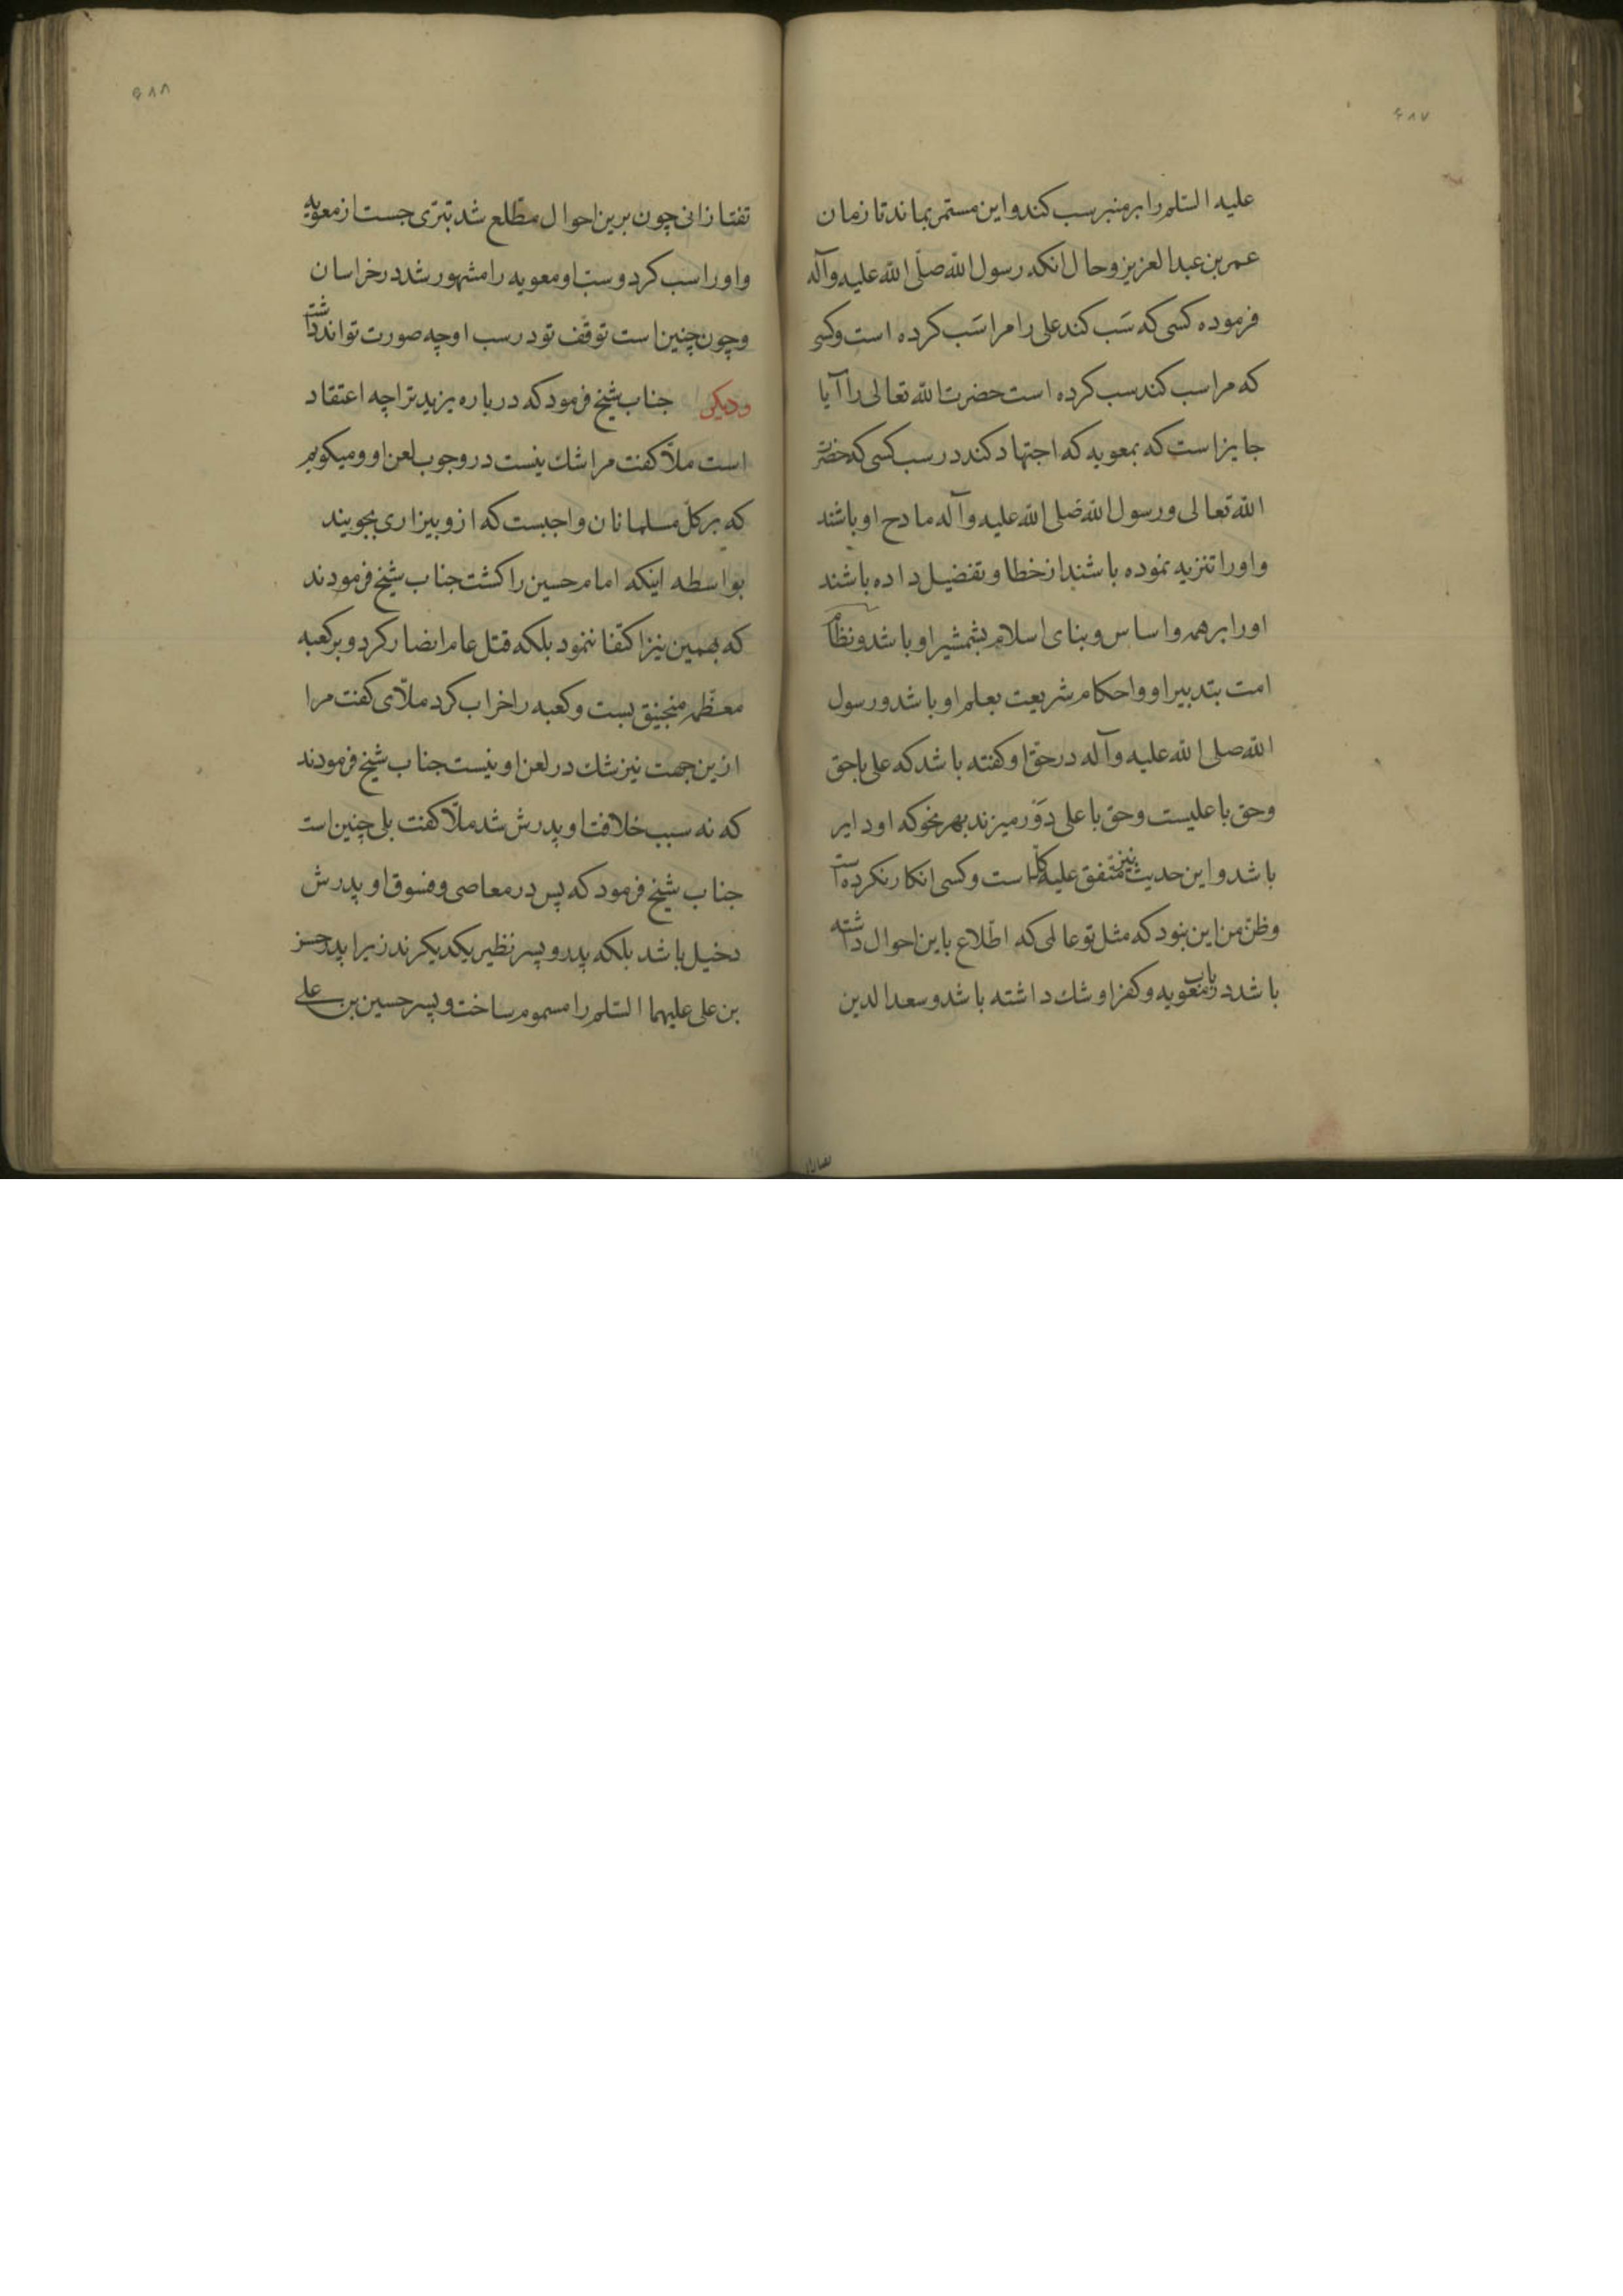 ۶۸۷
علیه السّلم را بر منبر سب کند و این مستمر بماند تا زمان
عمر بن عبدالعزیز و حال انکه رسول الله صلّی الله علیه وآله
فرموده کسی که سَب کند علی را مرا سَب کرده است و کسی
که مرا سب کند سب کرده است حضرت الله تعالی را آیا
جایز است که بمعویه که اجتهاد کند در سب کسی که حضرت
الله تعالی و رسول الله صلی الله علیه وآله مادح او باشند
و او را تنزیه نموده باشند از خطا و تفضیل داده باشند
او را بر همه و اساس و بنای اسلام بشمشیر او باشد و نظام
امت بتدبیر او و احکام شریعت بعلم او باشد و رسول
الله صلی الله علیه وآله در حقّ او کفته باشد که علی با حق
و حق با علیست و حق با علی دَوْر میزند بهر نحو که او دایر
باشد و این حدیث نیز متفق علیه کلّ است و کسی انکار نکرده است
و ظنّ من این نبود که مثل تو عالمی که اطّلاع باین احوال داشته
باشد در باب معویه و کفر او شك داشته باشد و سعد الدین
۶۸۸
تفتازانی چون برین احوال مطّلع شد تبرّی جست از معویه
و او را سب کرد و سبّ او معویه را مشهور شد در خراسان
و چون چنین است توقّف تو در سب او چه صورت تواند داشت
و دیکر جناب شیخ فرمود که در باره یزید ترا چه اعتقاد
است ملّا کفت مرا شك نیست در وجوب لعن او و میکویم
که بر کلّ مسلمانان واجبست که ازو بیزاری بجویند
بواسطه اینکه امام حسین را کشت جناب شیخ فرمودند
که بهمین نیز اکتفا ننمود بلکه قتل عام انصار کرد و بر کعبه
معظّمه منجنیق بست و کعبه را خراب کرد ملّای کفت مرا
ازین جهت نیز شك در لعن او نیست جناب شیخ فرمودند
که نه سبب خلافت او پدرش شد ملّا کفت بلی چنین است
جناب شیخ فرمود که پس در معاصی و فسوق او پدرش
دخیل باشد بلکه پدر و پسر نظیر یکدیکرند زیرا پدر حسن
بن علی علیهما السّلم را مسموم ساخت و پسر حسین بن علی